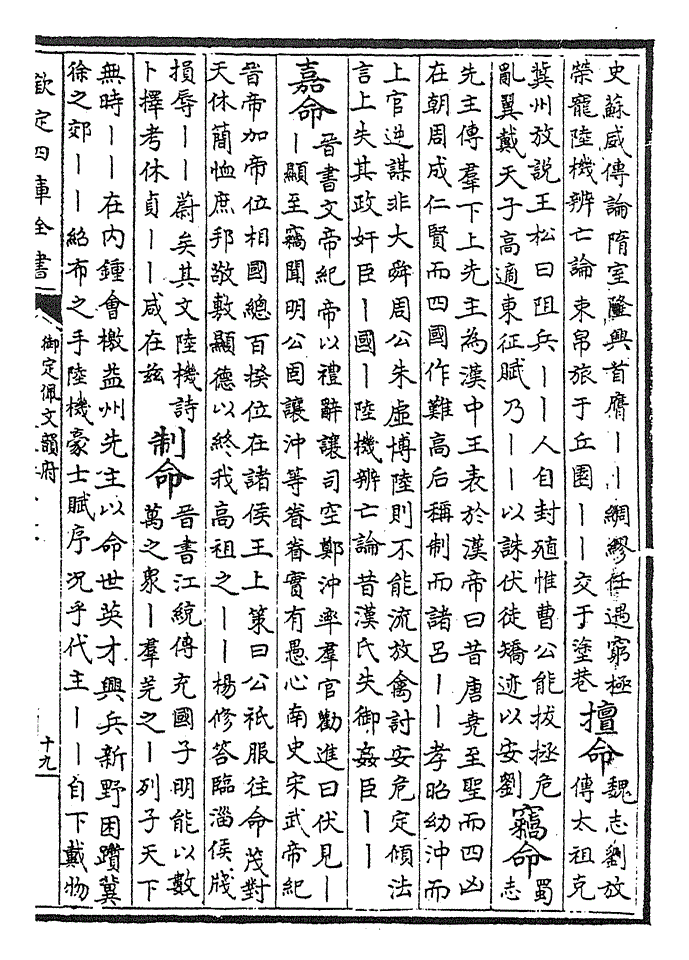 史蘇威傳論隋室隆興首膺｜｜綢繆任遇窮極
榮寵陸機辨亡論束帛旅于丘園｜｜交于塗巷
擅命
魏志劉放
傳太祖克
冀州放説王松曰阻兵｜｜人自封殖惟曹公能拔拯危
亂翼戴天子高適東征賦乃｜｜以誅伏徒矯迹以安劉
竊命
蜀
志
先主傳羣下上先主為漢中王表於漢帝曰昔唐堯至聖而四凶
在朝周成仁賢而四國作難高后稱制而諸呂｜｜孝昭幼沖而
上官逆謀非大舜周公朱虛博陸則不能流放禽討安危定傾法
言上失其政奸臣｜國｜陸機辨亡論昔漢氏失御姦臣｜｜
嘉命
晉書文帝紀帝以禮辭讓司空鄭沖率羣官勸進曰伏見｜
｜顯至竊聞明公固讓沖等眷眷實有愚心南史宋武帝紀
晉帝加帝位相國總百揆位在諸侯王上策曰公祗服往命茂對
天休簡恤庶邦敬敷顯德以終我高祖之｜｜楊修答臨淄侯牋
損辱｜｜蔚矣其文陸機詩
卜擇考休貞｜｜咸在兹
制命
晉書江統傳充國子明能以數
萬之衆｜羣羌之｜列子天下
無時｜｜在内鍾會檄益州先主以命世英才興兵新野困躓冀
徐之郊｜｜紹布之手陸機豪士賦序况乎代主｜｜自下戴物
欽定四庫全書
御定佩文韻府
十九